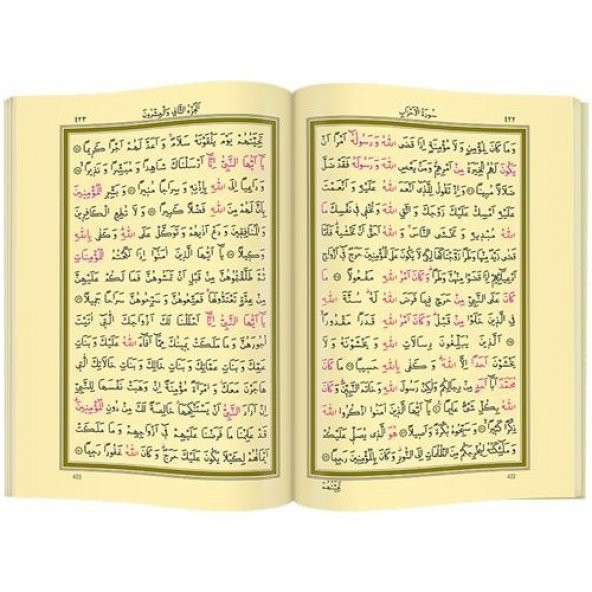 سورة الاحزاب
٤٢٢
وَمَا كَانَ لِمُؤْمِنٍ وَلَا مُؤْمِنَةٍ اِذَا قَضَى اللّٰهُ وَرَسُولُهُ اَمْرًا اَنْ
يَكُونَ لَهُمُ الْخِيَرَةُ مِنْ اَمْرِهِمْ وَمَنْ يَعْصِ اللّٰهَ وَرَسُولَهُ فَقَدْ ضَلَّ
ضَلَالًا مُبِينًا وَاِذْ تَقُولُ لِلَّذِى اَنْعَمَ اللّٰهُ عَلَيْهِ وَاَنْعَمْتَ
عَلَيْهِ اَمْسِكْ عَلَيْكَ زَوْجَكَ وَاتَّقِ اللّٰهَ وَتُخْفِى فِى نَفْسِكَ مَا
اللّٰهُ مُبْدِيهِ وَتَخْشَى النَّاسَ وَاللّٰهُ اَحَقُّ اَنْ تَخْشٰيهُ فَلَمَّا
قَضٰى زَيْدٌ مِنْهَا وَطَرًا زَوَّجْنَاكَهَا لِكَىْ لَا يَكُونَ عَلَى الْمُؤْمِنِينَ حَرَجٌ فِى
اَزْوَاجِ اَدْعِيَائِهِمْ اِذَا قَضَوْا مِنْهُنَّ وَطَرًا وَكَانَ اَمْرُ اللّٰهِ مَفْعُولًا مَا
كَانَ عَلَى النَّبِىِّ مِنْ حَرَجٍ فِيمَا فَرَضَ اللّٰهُ لَهُ سُنَّةَ اللّٰهِ
فِى الَّذِينَ خَلَوْا مِنْ قَبْلُ وَكَانَ اَمْرُ اللّٰهِ قَدَرًا مَقْدُورًا
اَلَّذِينَ يُبَلِّغُونَ رِسَالَاتِ اللّٰهِ وَيَخْشَوْنَهُ وَلَا
يَخْشَوْنَ اَحَدًا اِلَّا اللّٰهَ وَكَفٰى بِاللّٰهِ حَسِيبًا مَا كَانَ
مُحَمَّدٌ اَبَا اَحَدٍ مِنْ رِجَالِكُمْ وَلٰكِنْ رَسُولَ اللّٰهِ وَخَاتَمَ النَّبِيِّنَ وَكَانَ
اللّٰهُ بِكُلِّ شَىْءٍ عَلِيمًا يَا اَيُّهَا الَّذِينَ اٰمَنُوا اذْكُرُوا اللّٰهَ
ذِكْرًا كَثِيرًا وَسَبِّحُوهُ بُكْرَةً وَاَصِيلًا هُوَ الَّذِى يُصَلِّى عَلَيْكُمْ
وَمَلٰئِكَتُهُ لِيُخْرِجَكُمْ مِنَ الظُّلُمَاتِ اِلَى النُّورِ وَكَانَ بِالْمُؤْمِنِينَ رَحِيمًا
422
تَحِيَّتُهُمْ
الجزء الثاني والعشرون
٤٢٣
تَحِيَّتُهُمْ يَوْمَ يَلْقَوْنَهُ سَلَامٌ وَاَعَدَّ لَهُمْ اَجْرًا كَرِيمًا
يَا اَيُّهَا النَّبِىُّ اِنَّا اَرْسَلْنَاكَ شَاهِدًا وَمُبَشِّرًا وَنَذِيرًا
وَدَاعِيًا اِلَى اللّٰهِ بِاِذْنِهِ وَسِرَاجًا مُنِيرًا وَبَشِّرِ الْمُؤْمِنِينَ
بِاَنَّ لَهُمْ مِنَ اللّٰهِ فَضْلًا كَبِيرًا وَلَا تُطِعِ الْكَافِرِينَ
وَالْمُنَافِقِينَ وَدَعْ اَذٰيهُمْ وَتَوَكَّلْ عَلَى اللّٰهِ وَكَفٰى بِاللّٰهِ
وَكِيلًا يَا اَيُّهَا الَّذِينَ اٰمَنُوا اِذَا نَكَحْتُمُ الْمُؤْمِنَاتِ
ثُمَّ طَلَّقْتُمُوهُنَّ مِنْ قَبْلِ اَنْ تَمَسُّوهُنَّ فَمَا لَكُمْ عَلَيْهِنَّ
مِنْ عِدَّةٍ تَعْتَدُّونَهَا فَمَتِّعُوهُنَّ وَسَرِّحُوهُنَّ سَرَاحًا جَمِيلًا
يَا اَيُّهَا النَّبِىُّ اِنَّا اَحْلَلْنَا لَكَ اَزْوَاجَكَ الّٰتِى اٰتَيْتَ
اُجُورَهُنَّ وَمَا مَلَكَتْ يَمِينُكَ مِمَّا اَفَاءَ اللّٰهُ عَلَيْكَ وَبَنَاتِ
عَمِّكَ وَبَنَاتِ عَمَّاتِكَ وَبَنَاتِ خَالِكَ وَبَنَاتِ خَالَاتِكَ الّٰتِى
هَاجَرْنَ مَعَكَ وَامْرَاَةً مُؤْمِنَةً اِنْ وَهَبَتْ نَفْسَهَا لِلنَّبِىِّ
اِنْ اَرَادَ النَّبِىُّ اَنْ يَسْتَنْكِحَهَا خَالِصَةً لَكَ مِنْ دُونِ الْمُؤْمِنِينَ
قَدْ عَلِمْنَا مَا فَرَضْنَا عَلَيْهِمْ فِى اَزْوَاجِهِمْ وَمَا مَلَكَتْ
اَيْمَانُهُمْ لِكَيْلَا يَكُونَ عَلَيْكَ حَرَجٌ وَكَانَ اللّٰهُ غَفُورًا رَحِيمًا
423